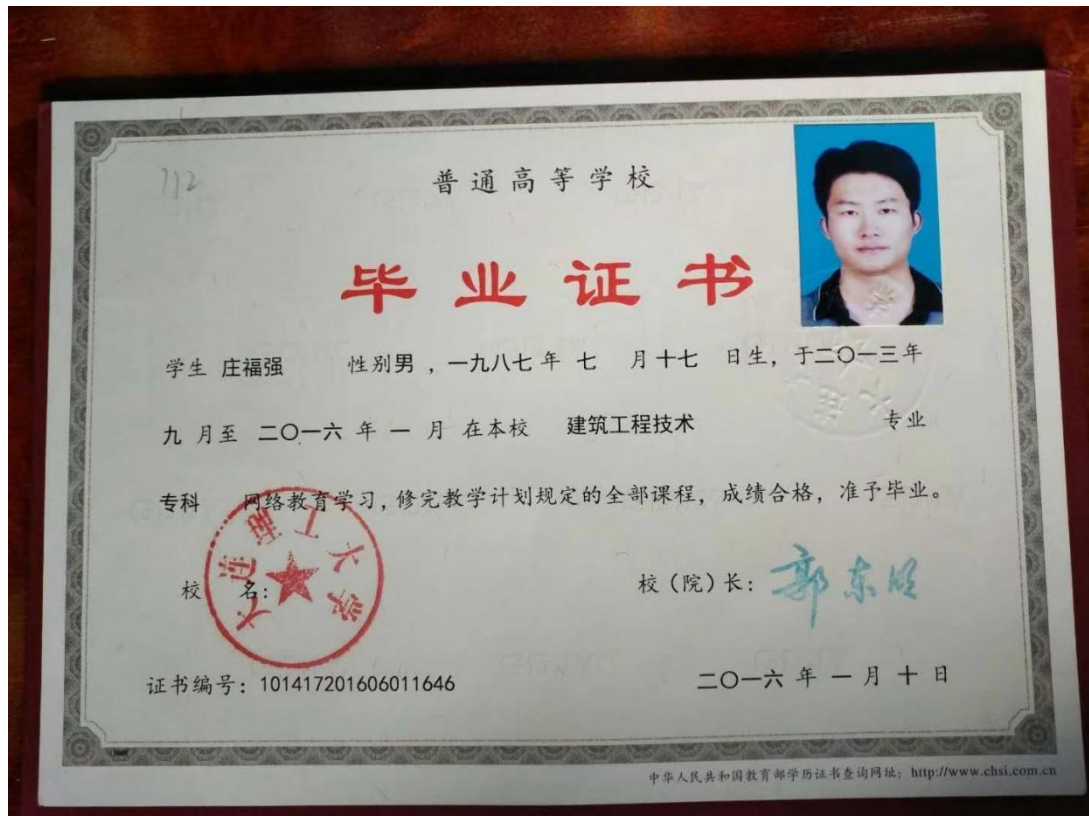 112
普通高等学校
毕业证书
学生 庄福强 性别男 ，一九八七 年 七 月 十七 日生，于二〇一三年
九 月至 二〇一六 年 一 月 在本校 建筑工程技术 专业
专科 网络教育学习，修完教学计划规定的全部课程，成绩合格，准予毕业。
大连理工大学
校 名：
校（院）长：郭东明
证书编号：101417201606011646
二〇一六 年 一 月 十 日
中华人民共和国教育部学历证书查询网址：http://www.chsi.com.cn